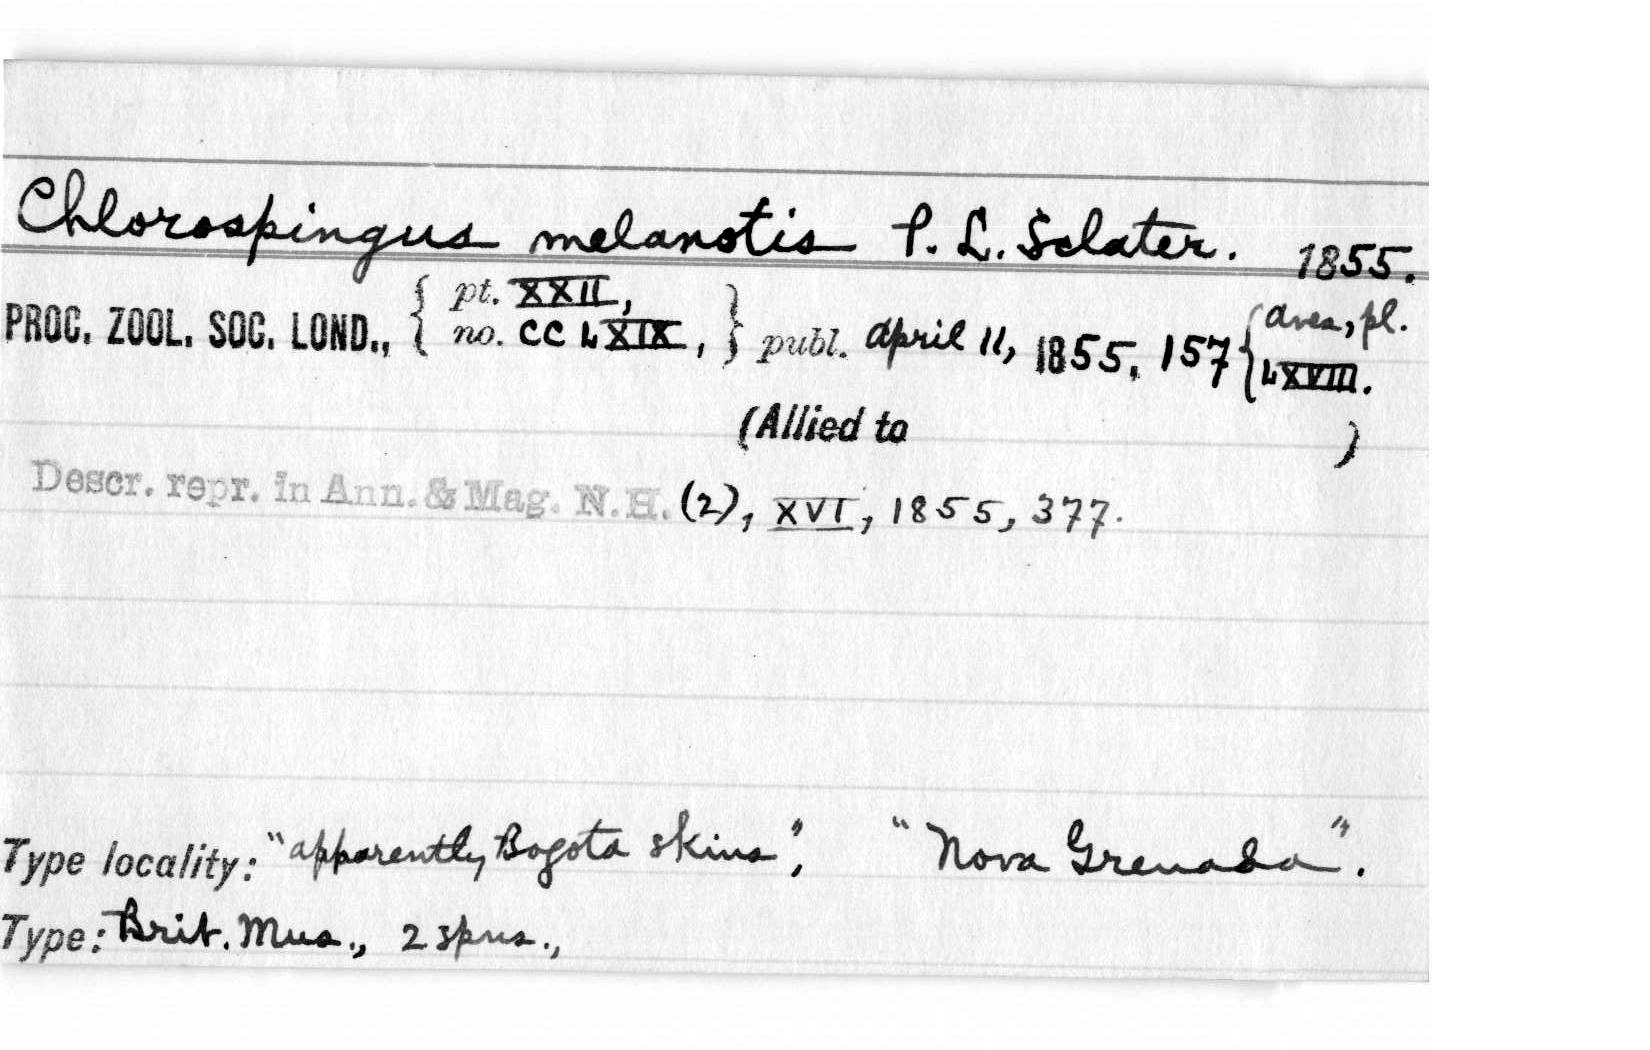 Chlorospingus melanotis P. L. Sclater. 1855.
PROC. ZOOL. SOC. LOND., { pt. XXII, no. CCLXIX, } publ. April 11, 1855, 157 { Aves, pl. LXVIII.
(Allied to )
Descr. repr. in Ann. & Mag. N.H. (2), XVI, 1855, 377.
Type locality: "apparently Bogota skins", "Nova Grenada".
Type: Brit. Mus., 2 spns.,